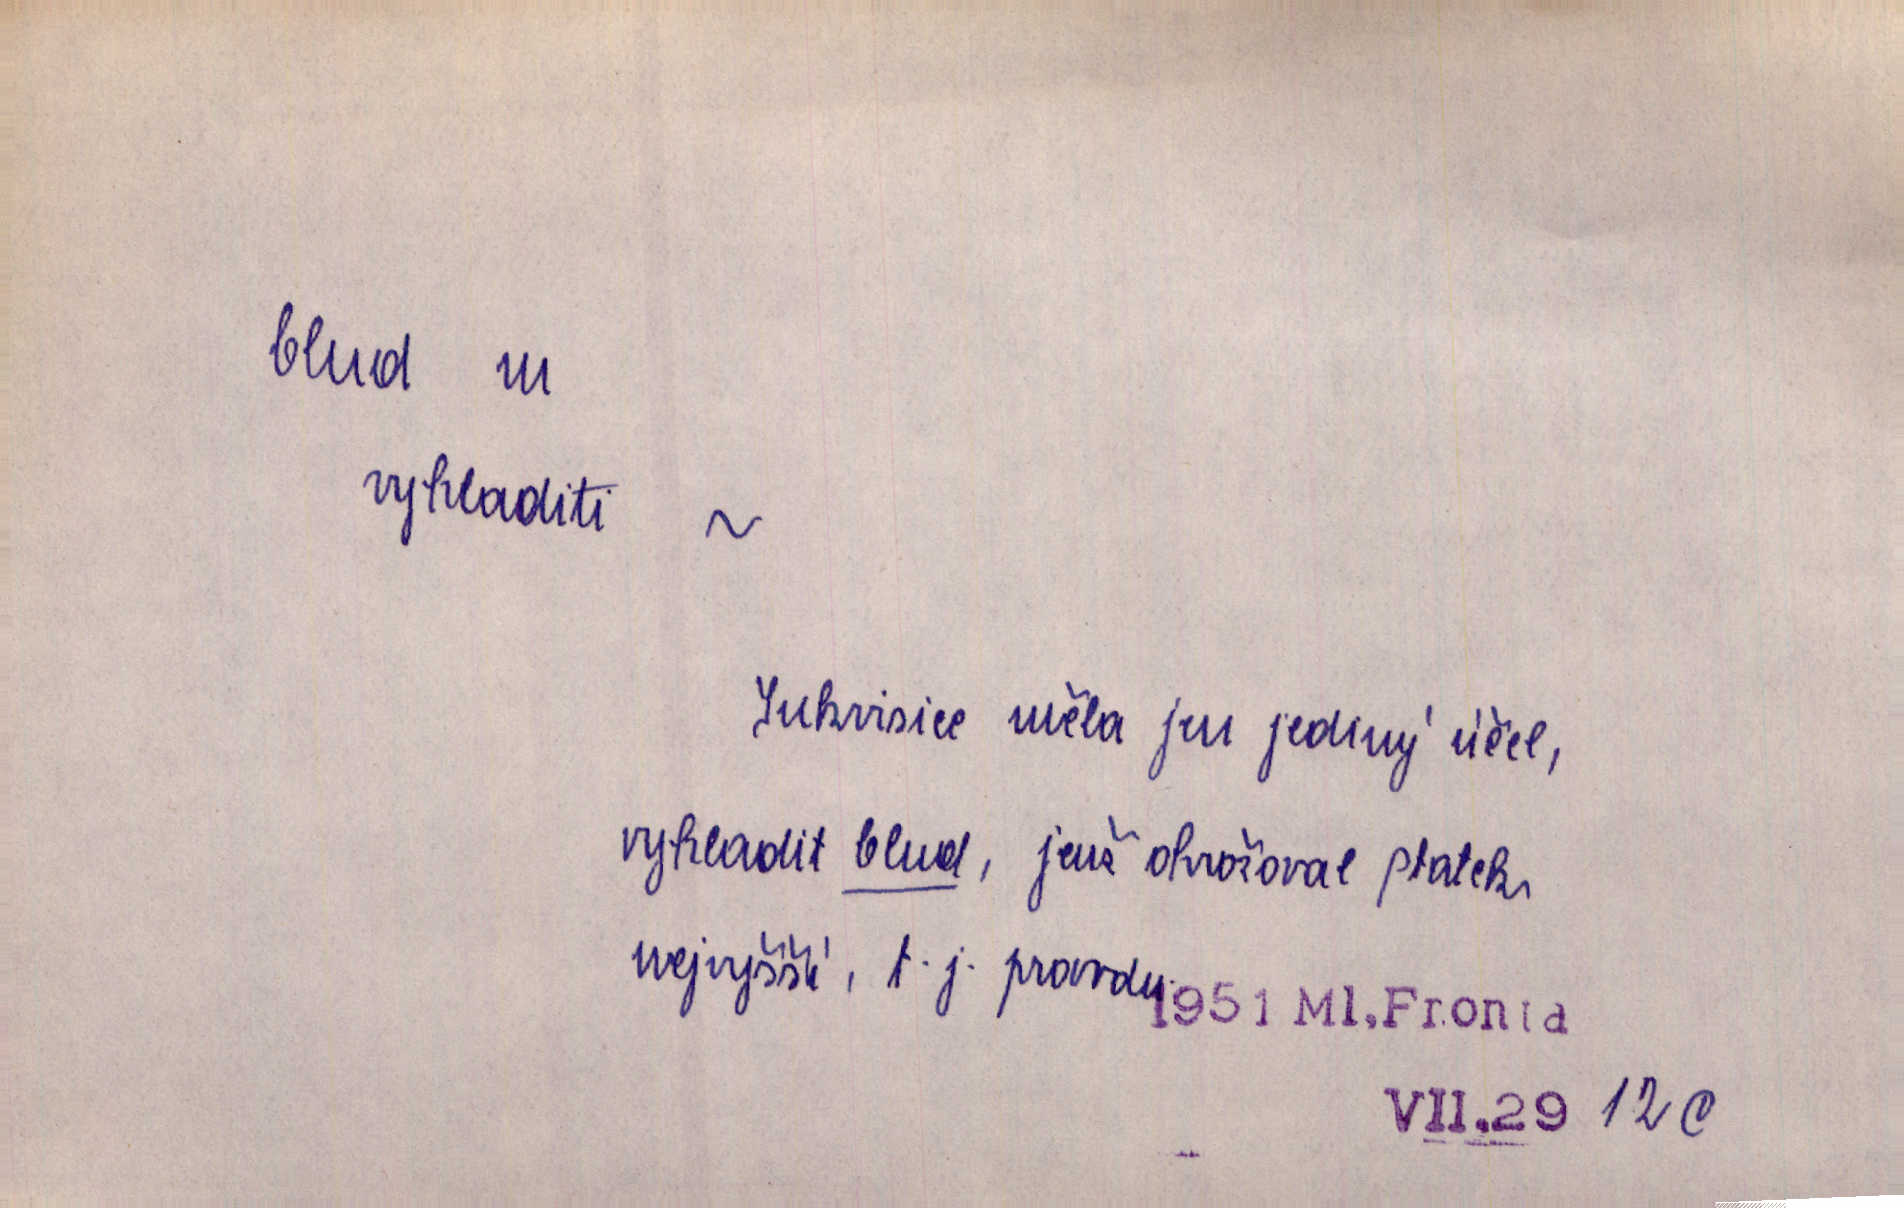 blud m
vyhladiti ~
Inkvisice měla jen jediný účel,
vyhladit blud, jenž ohrožoval statek
nejvyšší, t.j. pravdu.
1951 Ml.Fronta
VII.29 12 c